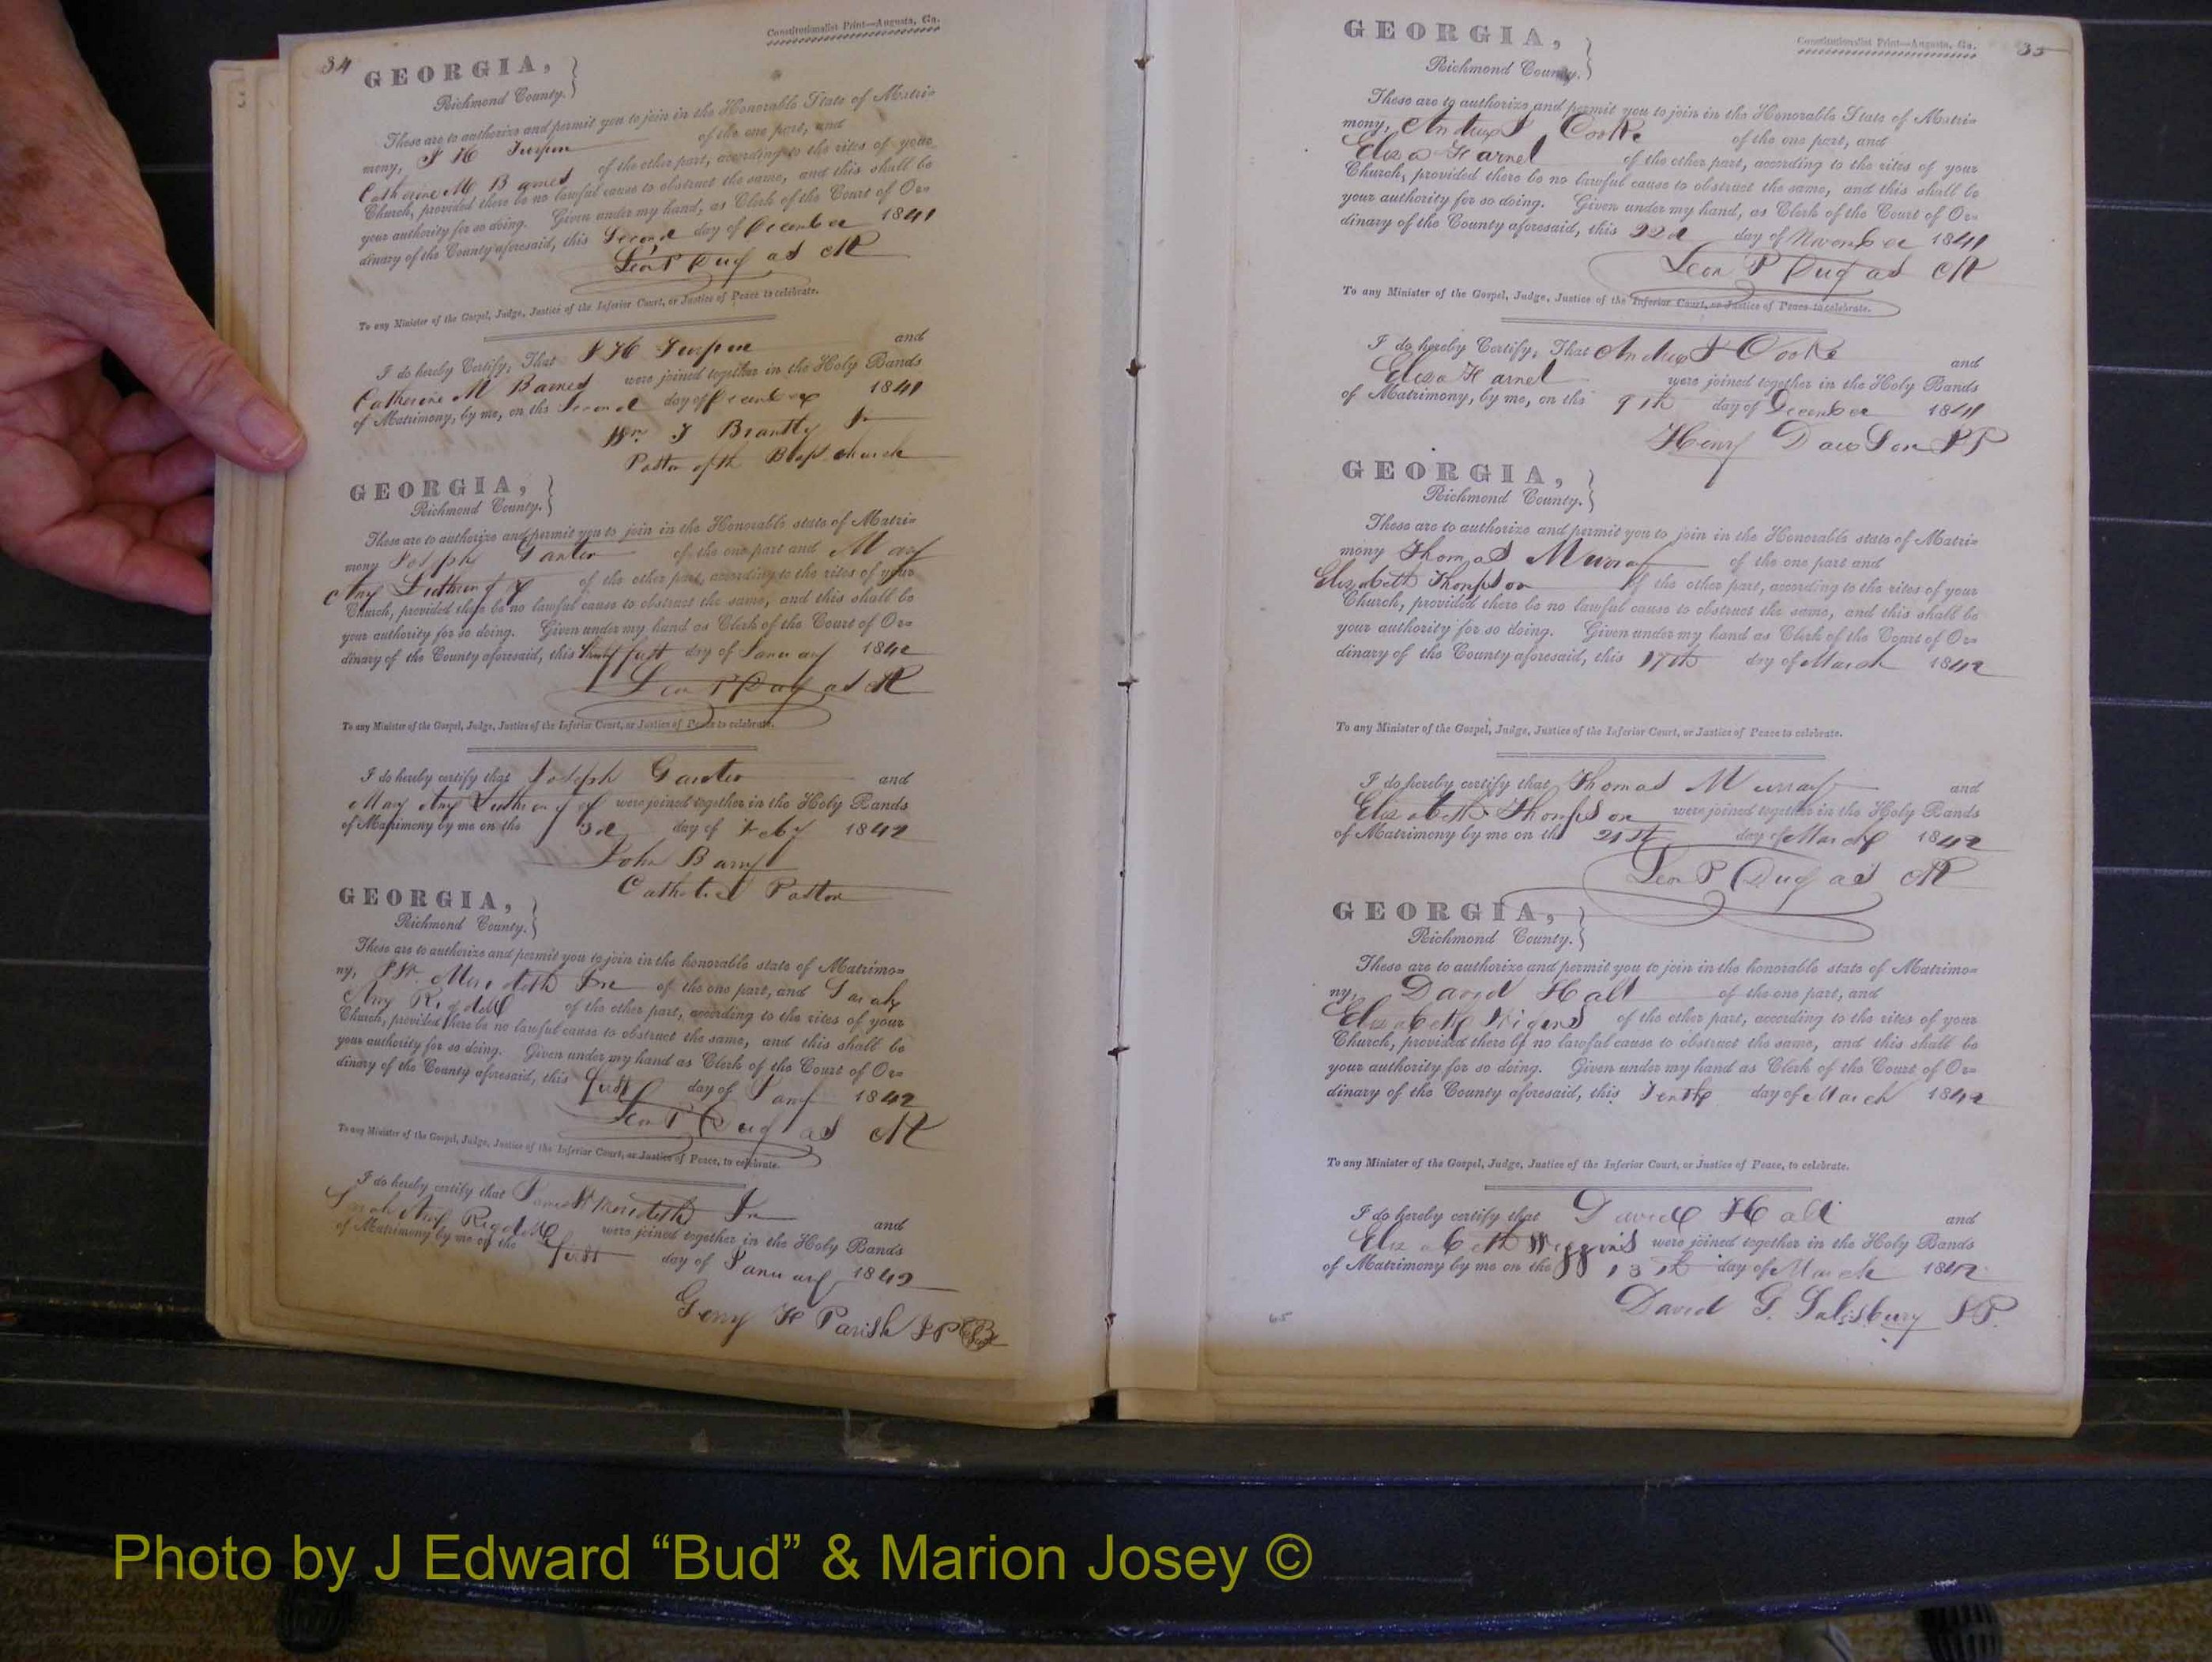 34
Constitutionalist Print—Augusta, Ga.
GEORGIA,
Richmond County.
These are to authorize and permit you to join in the Honorable State of Matri-
mony, J H Turpin of the one part, and
Catherine M Barnes of the other part, according to the rites of your
Church, provided there be no lawful cause to obstruct the same, and this shall be
your authority for so doing. Given under my hand, as Clerk of the Court of Or-
dinary of the County aforesaid, this Second day of December 1841
Leon P Dugas Clk
To any Minister of the Gospel, Judge, Justice of the Inferior Court, or Justice of Peace to celebrate.
I do hereby Certify, That J H Turpin and
Catherine M Barnes were joined together in the Holy Bands
of Matrimony, by me, on the Second day of December 1841
Wm. T Brantly Jr
Pastor of the Bapt church
GEORGIA,
Richmond County.
These are to authorize and permit you to join in the Honorable state of Matri-
mony Joseph Ganter of the one part and Mary
Any of the other part, according to the rites of your
Church, provided there be no lawful cause to obstruct the same, and this shall be
your authority for so doing. Given under my hand as Clerk of the Court of Or-
dinary of the County aforesaid, this Thirty first day of January 1842
Leon P Dugas Clk
To any Minister of the Gospel, Judge, Justice of the Inferior Court, or Justice of Peace to celebrate.
I do hereby certify that Joseph Ganter and
Mary Any were joined together in the Holy Bands
of Matrimony by me on the 3d day of Feby 1842
John Barry
Catholic Pastor
GEORGIA,
Richmond County.
These are to authorize and permit you to join in the honorable state of Matrimo-
ny, Meredith Jnr of the one part, and Sarah
Any Riddell of the other part, according to the rites of your
Church, provided there be no lawful cause to obstruct the same, and this shall be
your authority for so doing. Given under my hand as Clerk of the Court of Or-
dinary of the County aforesaid, this first day of Jany 1842
Leon P Dugas Clk
To any Minister of the Gospel, Judge, Justice of the Inferior Court, or Justice of Peace, to celebrate.
I do hereby certify that James W Meredith Jr and
Sarah Any Riddell were joined together in the Holy Bands
of Matrimony by me on the first day of January 1842
Gerry H Parish JP
Constitutionalist Print—Augusta, Ga.
35
GEORGIA,
Richmond County.
These are to authorize and permit you to join in the Honorable State of Matri-
mony, Andrew J Cooke of the one part, and
Eliza Harnel of the other part, according to the rites of your
Church, provided there be no lawful cause to obstruct the same, and this shall be
your authority for so doing. Given under my hand, as Clerk of the Court of Or-
dinary of the County aforesaid, this 22d day of November 1841
Leon P Dugas Clk
To any Minister of the Gospel, Judge, Justice of the Inferior Court, or Justice of Peace to celebrate.
I do hereby Certify, That Andrew J Cooke and
Eliza Harnel were joined together in the Holy Bands
of Matrimony, by me, on the 9th day of December 1841
Henry Dawson JP
GEORGIA,
Richmond County.
These are to authorize and permit you to join in the Honorable state of Matri-
mony Thomas Murray of the one part and
Elizabeth Thompson of the other part, according to the rites of your
Church, provided there be no lawful cause to obstruct the same, and this shall be
your authority for so doing. Given under my hand as Clerk of the Court of Or-
dinary of the County aforesaid, this 17th day of March 1842
To any Minister of the Gospel, Judge, Justice of the Inferior Court, or Justice of Peace to celebrate.
I do hereby certify that Thomas Murray and
Elizabeth Thompson were joined together in the Holy Bands
of Matrimony by me on the 21st day of March 1842
Leon P Dugas Clk
GEORGIA,
Richmond County.
These are to authorize and permit you to join in the honorable state of Matrimo-
ny, David Hall of the one part, and
Elizabeth Wigins of the other part, according to the rites of your
Church, provided there be no lawful cause to obstruct the same, and this shall be
your authority for so doing. Given under my hand as Clerk of the Court of Or-
dinary of the County aforesaid, this Tenth day of March 1842
To any Minister of the Gospel, Judge, Justice of the Inferior Court, or Justice of Peace, to celebrate.
I do hereby certify that David Hall and
Elizabeth Wiggins were joined together in the Holy Bands
of Matrimony by me on the 13th day of March 1842
David G. Salisbury JP.
65
Photo by J Edward “Bud” & Marion Josey ©